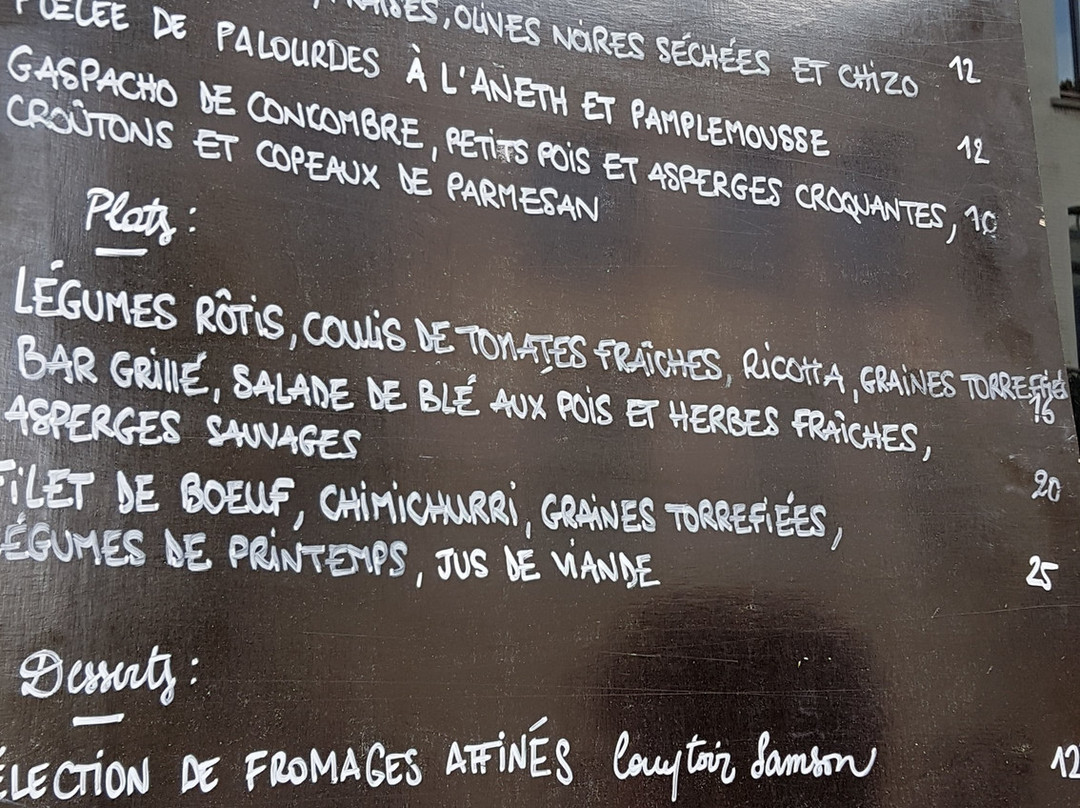 , OLIVES NOIRES SÉCHÉES ET CHIZO 12
POÊLÉE DE PALOURDES À L'ANETH ET PAMPLEMOUSSE 12
GASPACHO DE CONCOMBRE, PETITS POIS ET ASPERGES CROQUANTES, 10
CROÛTONS ET COPEAUX DE PARMESAN
Plats :
LÉGUMES RÔTIS, COULIS DE TOMATES FRAÎCHES, RICOTTA, GRAINES TORREFIÉES 16
BAR GRILLÉ, SALADE DE BLÉ AUX POIS ET HERBES FRAÎCHES,
ASPERGES SAUVAGES 20
FILET DE BOEUF, CHIMICHURRI, GRAINES TORREFIÉES,
LÉGUMES DE PRINTEMPS, JUS DE VIANDE 25
Desserts :
ÉLECTION DE FROMAGES AFFINÉS Comptoir Samson 12